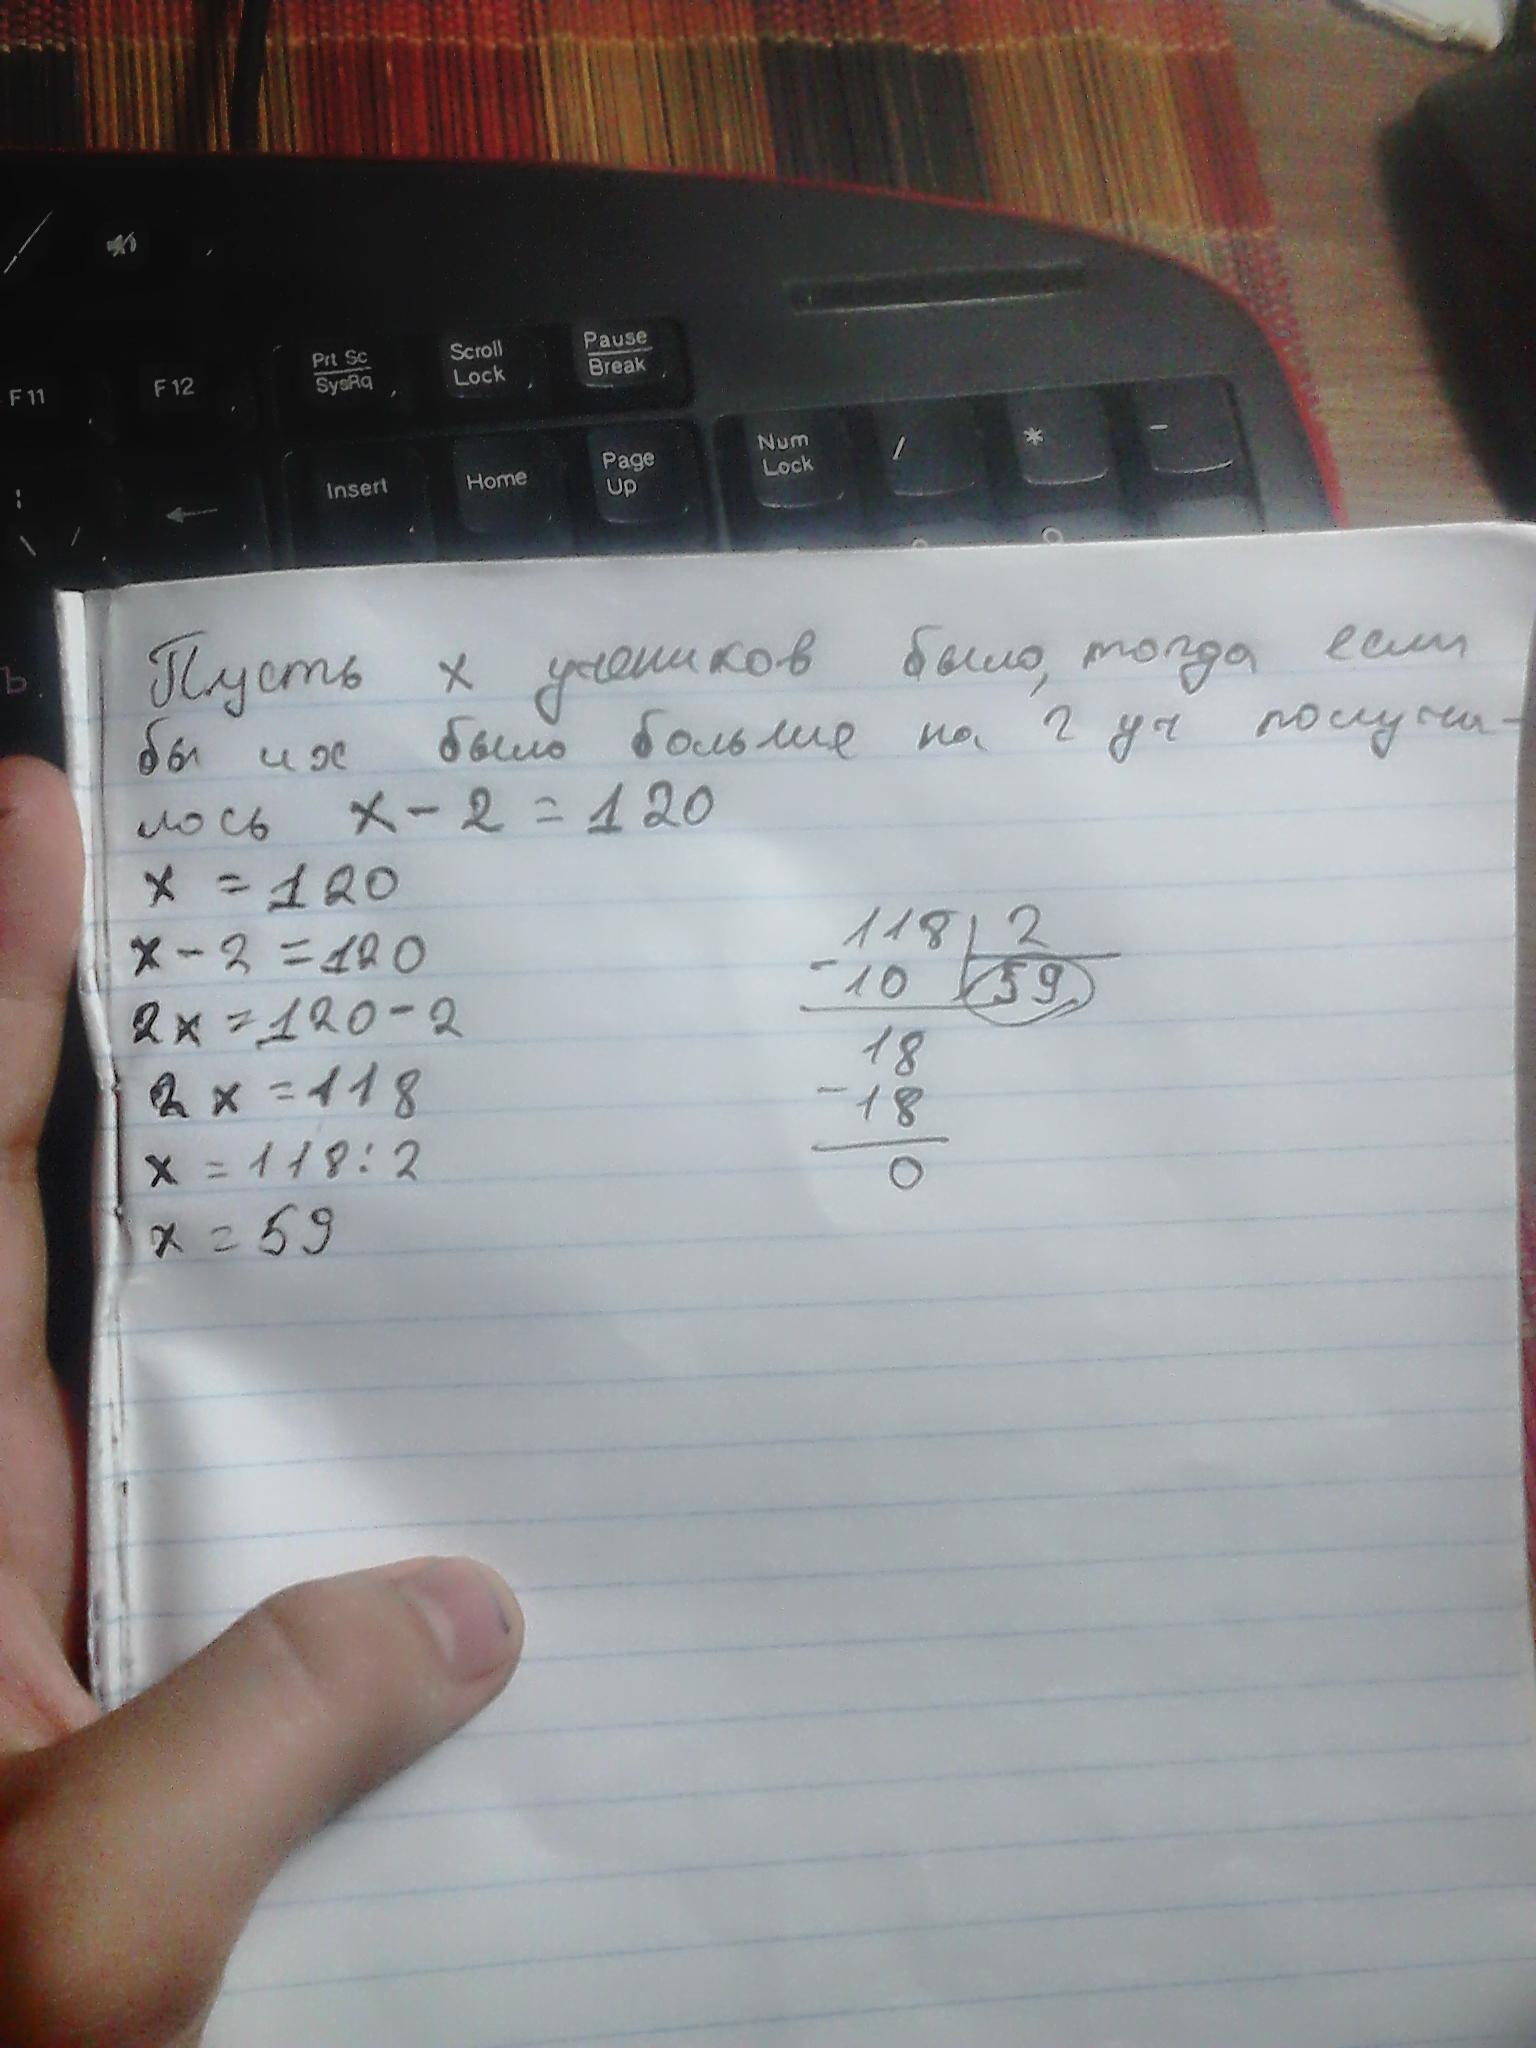 F11
F12
Prt Sc
SysRq
Scroll
Lock
Pause
Break
←
Insert
Home
Page
Up
Num
Lock
/
*
-
Пусть x учеников было, тогда если
бы их было больше на 2 уч получи-
лось x - 2 = 120
x = 120
x - 2 = 120
2x = 120 - 2
2x = 118
x = 118 : 2
x = 59
118 2
- 10 59
18
- 18
0